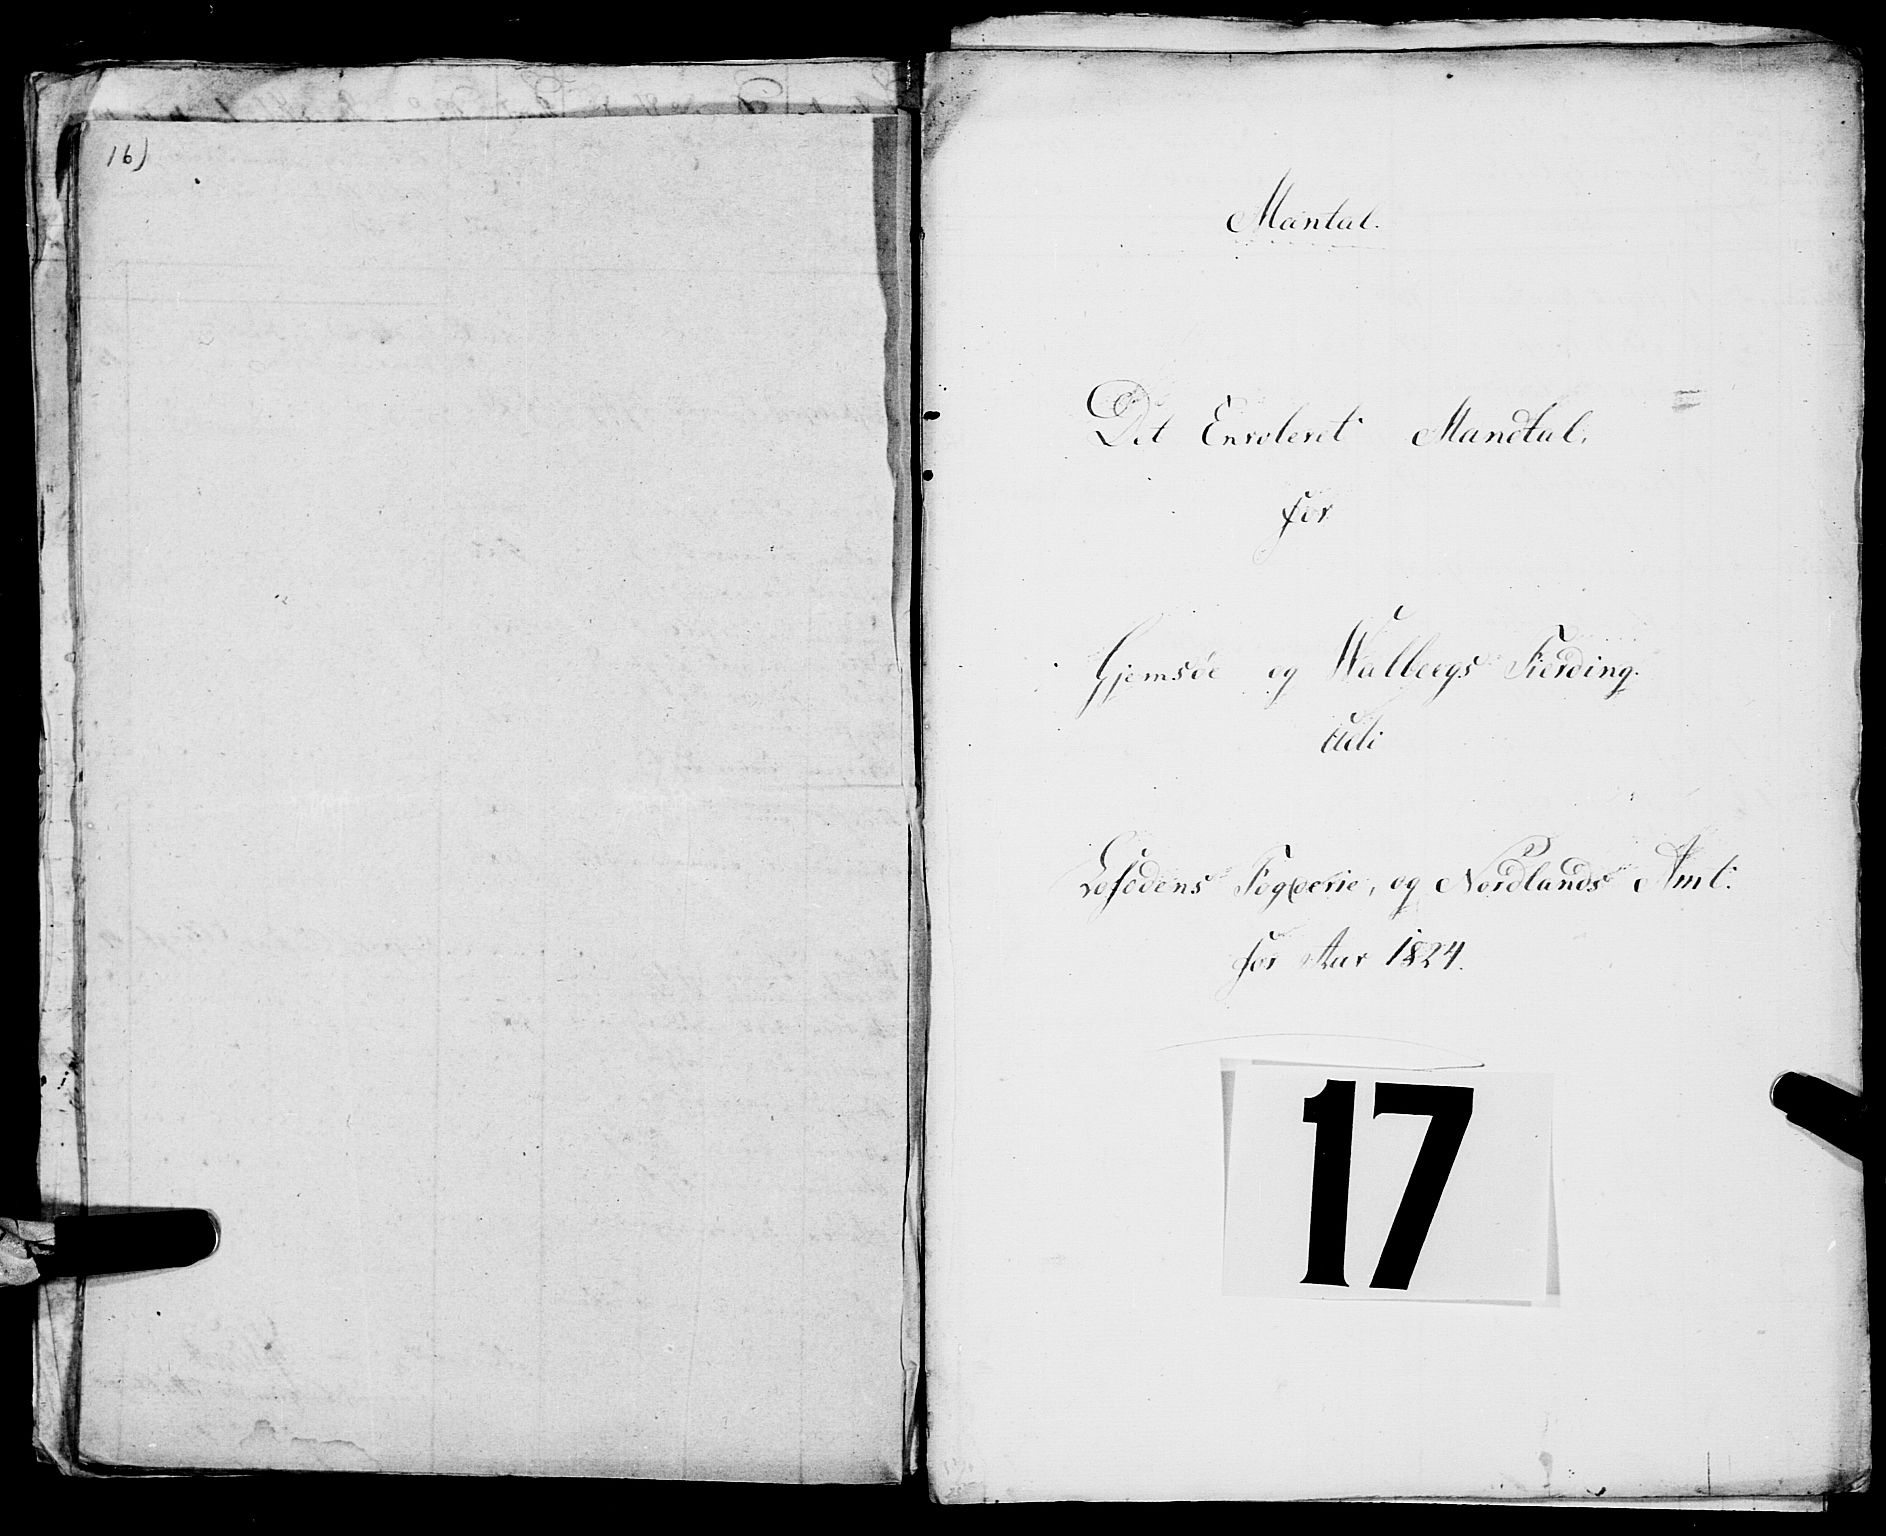 16)
Mantal.
Det Enroleret Mandtal,
for
Gjemsöe og Walbergs Fierding.
Udi
Lofodens Fogderie, og Nordlands Amt.
for Aar 1824.
17